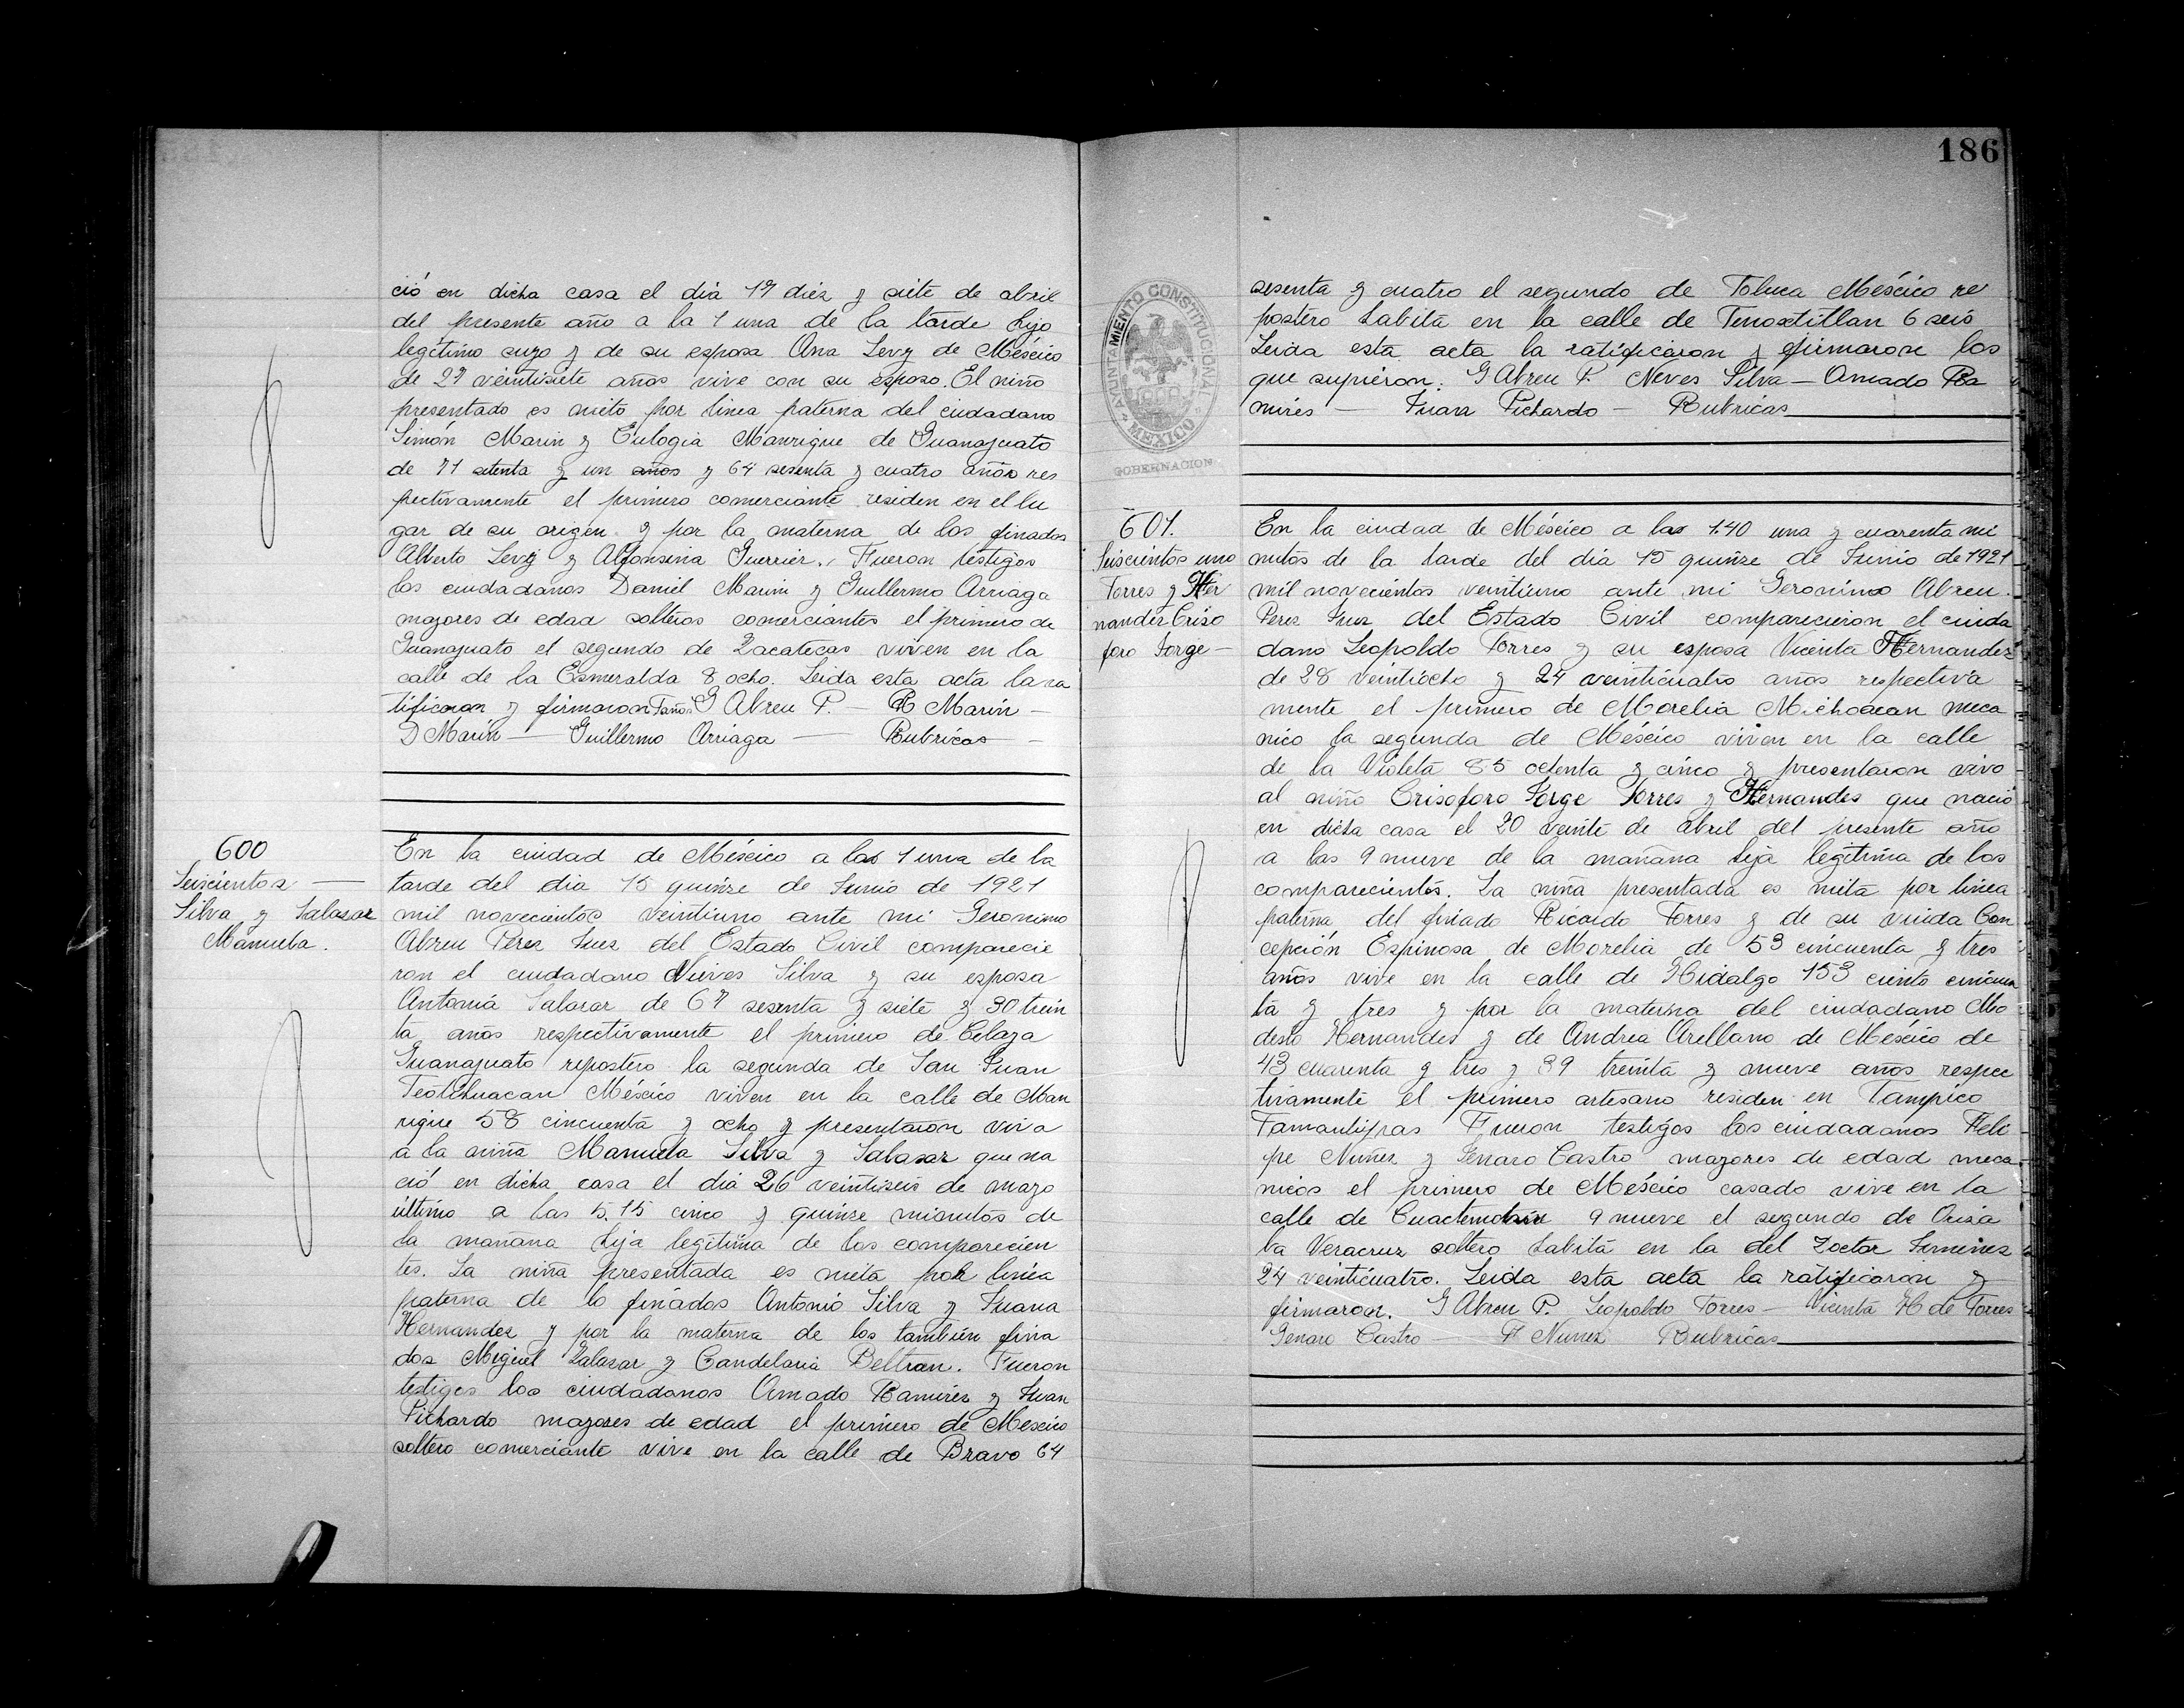 ció en dicha casa el dia 17 diez y siete de abril
del presente año a la 1 una de la tarde hijo
legitimo suyo y de su esposa Ana Levy de Méscico
de 27 veintisiete años vive con su esposo. El niño
presentado es nieto por linea paterna del ciudadano
Simón Marin y Eulogia Manrique de Guanajuato
de 71 setenta y un años y 64 sesenta y cuatro años res
pectivamente el primero comerciante residen en el lu
gar de su origen y por la materna de los finados
Alberto Levy y Alfonsina Guerrier. Fueron testigos
los ciudadanos Daniel Marin y Guillermo Arriaga
mayores de edad solteros comerciantes el primero de
Guanajuato el segundo de Zacatecas viven en la
calle de la Esmeralda 8 ocho. Leida esta acta la ra
tificaron y firmaron T años G Abreu P. — R Marin —
D Marin — Guillermo Arriaga — Rubricas —
600
Seiscientos —
Silva y Salasar
Manuela.
En la ciudad de Méscico a las 1 una de la
tarde del dia 15 quinse de Junio de 1921
mil novecientos veintiuno ante mi Geronimo
Abreu Perez Juez del Estado Civil comparecie
ron el ciudadano Nieves Silva y su esposa
Antonia Salasar de 67 sesenta y siete y 30 trein
ta anos respectivamente el primero de Celaya
Guanajuato repostero la segunda de San Juan
Teotihuacan Méscico viven en la calle de Man
rique 58 cincuenta y ocho y presentaron viva
a la niña Manuela Silva y Salasar que na
ció en dicha casa el dia 26 veintiseis de mayo
último a las 5.15 cinco y quinse minutos de
la mañana hija legitima de los comparecien
tes. La niña presentada es nieta por linea
paterna de lo finados Antonio Silva y Juana
Hernandez y por la materna de los también fina
dos Miguel Salasar y Candelaria Beltran. Fueron
testigos los ciudadanos Amado Ramirez y Juan
Pichardo mayores de edad el primero de Mescico
soltero comerciante vive en la calle de Bravo 64
186
AYUNTAMIENTO CONSTITUCIONAL
MEXICO
GOBERNACION
sesenta y cuatro el segundo de Toluca Méscico re
postero habita en la calle de Tenoxtitlan 6 seis
Leida esta acta la ratificaron y firmaron los
que supieron. G Abreu P. Neves Silva — Amado Ra
mires — Juan Pichardo — Rubricas
601.
Seiscientos uno
Torres y Her
nandes Criso
foro Jorge —
En la ciudad de Méscico a las 1.40 una y cuarenta mi
nutos de la tarde del dia 15 quinse de Junio de 1921
mil novecientos veintiuno ante mi Geronimo Abreu
Perez Juez del Estado Civil comparecieron el ciuda
dano Leopoldo Torres y su esposa Vicenta Hernandez
de 28 veintiocho y 24 veinticuatro anos respectiva
mente el primero de Morelia Michoacan meca
nico la segunda de Méscico viven en la calle
de la Violeta 85 ochenta y cinco y presentaron vivo
al niño Crisoforo Jorge Torres y Hernandes que nació
en dicha casa el 20 veinte de abril del presente año
a las 9 nueve de la mañana hija legitima de los
comparecientes. La niña presentada es nieta por linea
paterna del finado Ricardo Torres y de su viuda Con
cepción Espinosa de Morelia de 53 cincuenta y tres
años vive en la calle de Hidalgo 153 ciento cincuen
ta y tres y por la materna del ciudadano Mo
desto Hernandes y de Andrea Arellano de Méscico de
43 cuarenta y tres y 39 treinta y nueve años respec
tivamente el primero artesano residen en Tampico
Tamaulipas Fueron testigos los ciudadanos Feli
pe Nuñez y Jenaro Castro mayores de edad meca
nicos el primero de Méscico casado vive en la
calle de Cuactemotzin 9 nueve el segundo de Orisa
ba Veracruz soltero habita en la del Doctor Jimenez
24 veinticuatro. Leida esta acta la ratificaron y
firmaron. G Abreu P. Leopoldo Torres — Vicenta H de Torres
Genaro Castro — F Nunez Rubricas